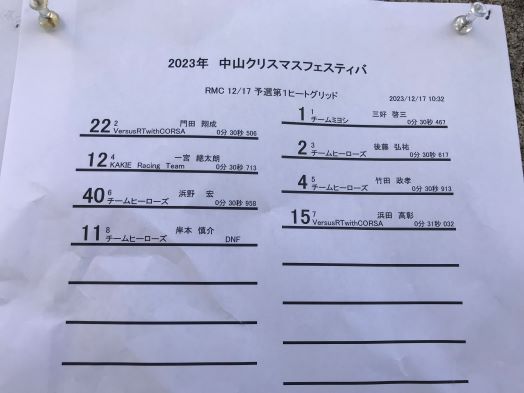 2023年 中山クリスマスフェスティバ
RMC 12/17 予選第1ヒートグリッド
2023/12/17 10:32
1 1 三好 啓三
チームミヨシ 0分 30秒 467
22 2 門田 翔成
VersusRTwithCORSA 0分 30秒 506
2 3 後藤 弘祐
チームヒーローズ 0分 30秒 617
12 4 一宮 總太朗
KAKIE Racing Team 0分 30秒 713
4 5 竹田 政孝
チームヒーローズ 0分 30秒 913
40 6 浜野 宏
チームヒーローズ 0分 30秒 958
15 7 浜田 高彰
VersusRTwithCORSA 0分 31秒 032
11 8 岸本 慎介
チームヒーローズ DNF